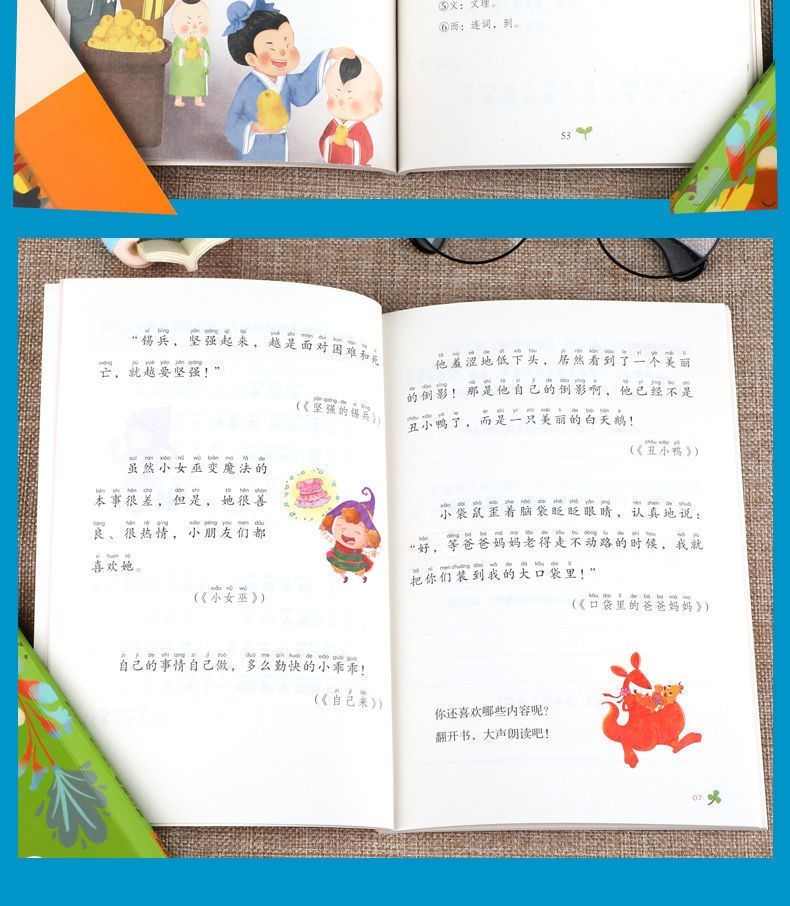 ⑤文：文理。
⑥而：连词，到。
53
xī bīng jiān qiáng qǐ lái yuè shì miàn duì kùn nán hé sǐ
“锡兵，坚强起来，越是面对困难和死
wáng jiù yuè yào jiān qiáng
亡，就越要坚强！”
jiān qiáng de xī bīng
（《坚强的锡兵》）
suī rán xiǎo nǚ wū biàn mó fǎ de
虽然小女巫变魔法的
běn shi hěn chà dàn shì tā hěn shàn
本事很差，但是，她很善
liáng hěn rè qíng xiǎo péng yǒu men dōu
良、很热情，小朋友们都
xǐ huan tā
喜欢她。
xiǎo nǚ wū
（《小女巫》）
zì jǐ de shì qing zì jǐ zuò duō me qín kuai de xiǎo guāi guāi
自己的事情自己做，多么勤快的小乖乖！
zì jǐ lái
（《自己来》）
tā xiū sè de dī xià tóu jū rán kàn dào le yí gè měi lì
他羞涩地低下头，居然看到了一个美丽
de dào yǐng nà shì tā zì jǐ de dào yǐng a tā yǐ jīng bú shì
的倒影！那是他自己的倒影啊，他已经不是
chǒu xiǎo yā le ér shì yì zhī měi lì de bái tiān é
丑小鸭了，而是一只美丽的白天鹅！
chǒu xiǎo yā
（《丑小鸭》）
xiǎo dài shǔ wāi zhe nǎo dai zhǎ zhǎ yǎn jīng rèn zhēn de shuō
小袋鼠歪着脑袋眨眨眼睛，认真地说：
hǎo děng bà ba mā ma lǎo de zǒu bú dòng lù de shí hou wǒ jiù
“好，等爸爸妈妈老得走不动路的时候，我就
bǎ nǐ men zhuāng dào wǒ de dà kǒu dai lǐ
把你们装到我的大口袋里！”
kǒu dai lǐ de bà ba mā ma
（《口袋里的爸爸妈妈》）
你还喜欢哪些内容呢？
翻开书，大声朗读吧！
07